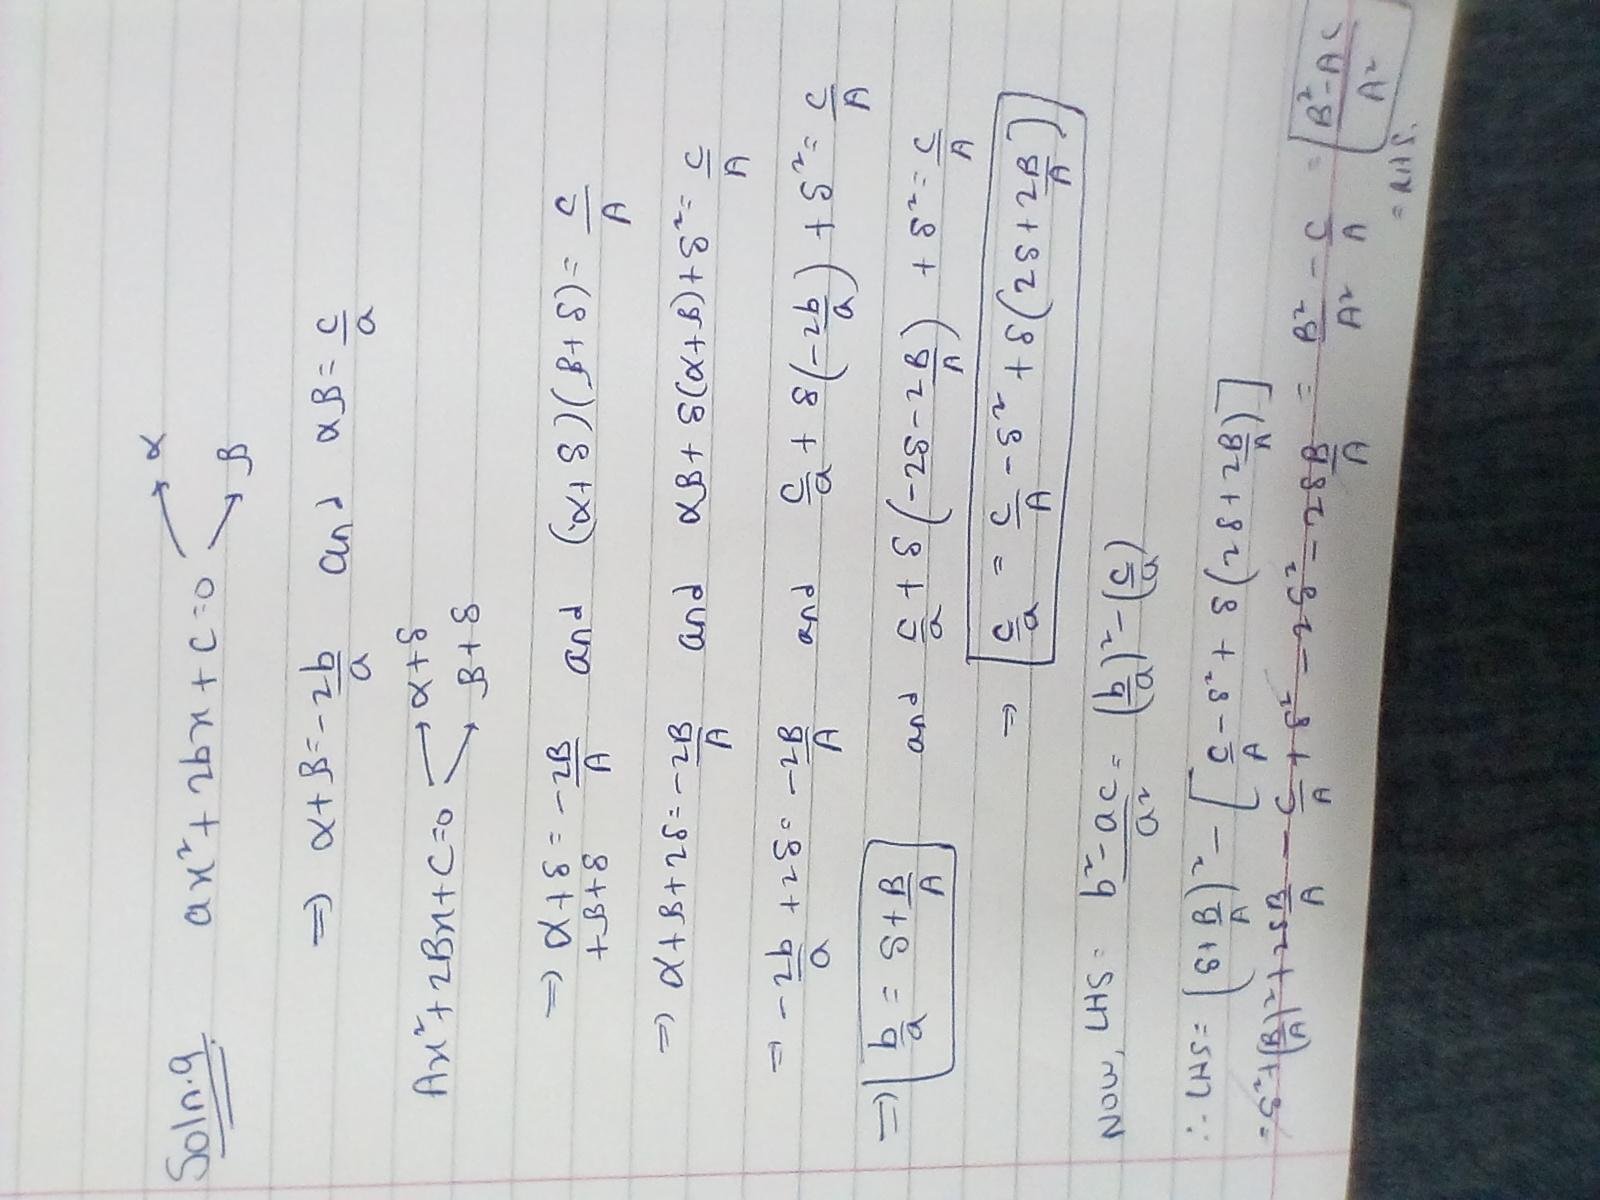 Soln.9 ax² + 2bx + c = 0 → α → β
⇒ α + β = -2b/a and αβ = c/a
Ax² + 2Bx + C = 0 → α+δ → β+δ
⇒ α+δ +β+δ = -2B/A and (α+δ)(β+δ) = C/A
⇒ α+β+2δ = -2B/A and αβ + δ(α+β) + δ² = C/A
⇒ -2b/a + 2δ = -2B/A and c/a + δ(-2b/a) + δ² = C/A
⇒ b/a = δ + B/A and c/a + δ(-2δ - 2B/A) + δ² = C/A
⇒ c/a = C/A - δ² + δ(2δ + 2B/A)
Now, LHS = b²-ac/a² = (b/a)² - (c/a)
∴ LHS = (δ + B/A)² - [C/A - δ² + δ(2δ + 2B/A)]
= δ² + (B/A)² + 2δB/A - C/A + δ² - 2δ² - 2δB/A = B²/A² - C/A = B²-AC/A²
= RHS.